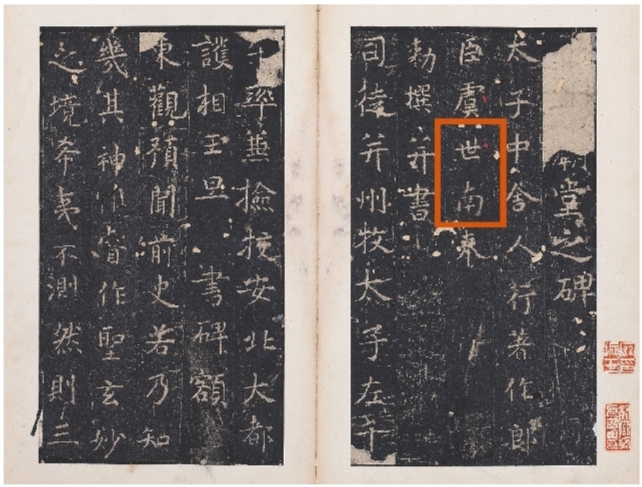 堂之碑
太子中舍人行著作郎
臣虞世南奉
勅撰并書
司徒并州牧太子左千
牛率兼撿挍安北大都
護相王旦 書碑額
東觀預聞前史若乃知
幾其神惟睿作聖玄妙
之境希夷不測然則三